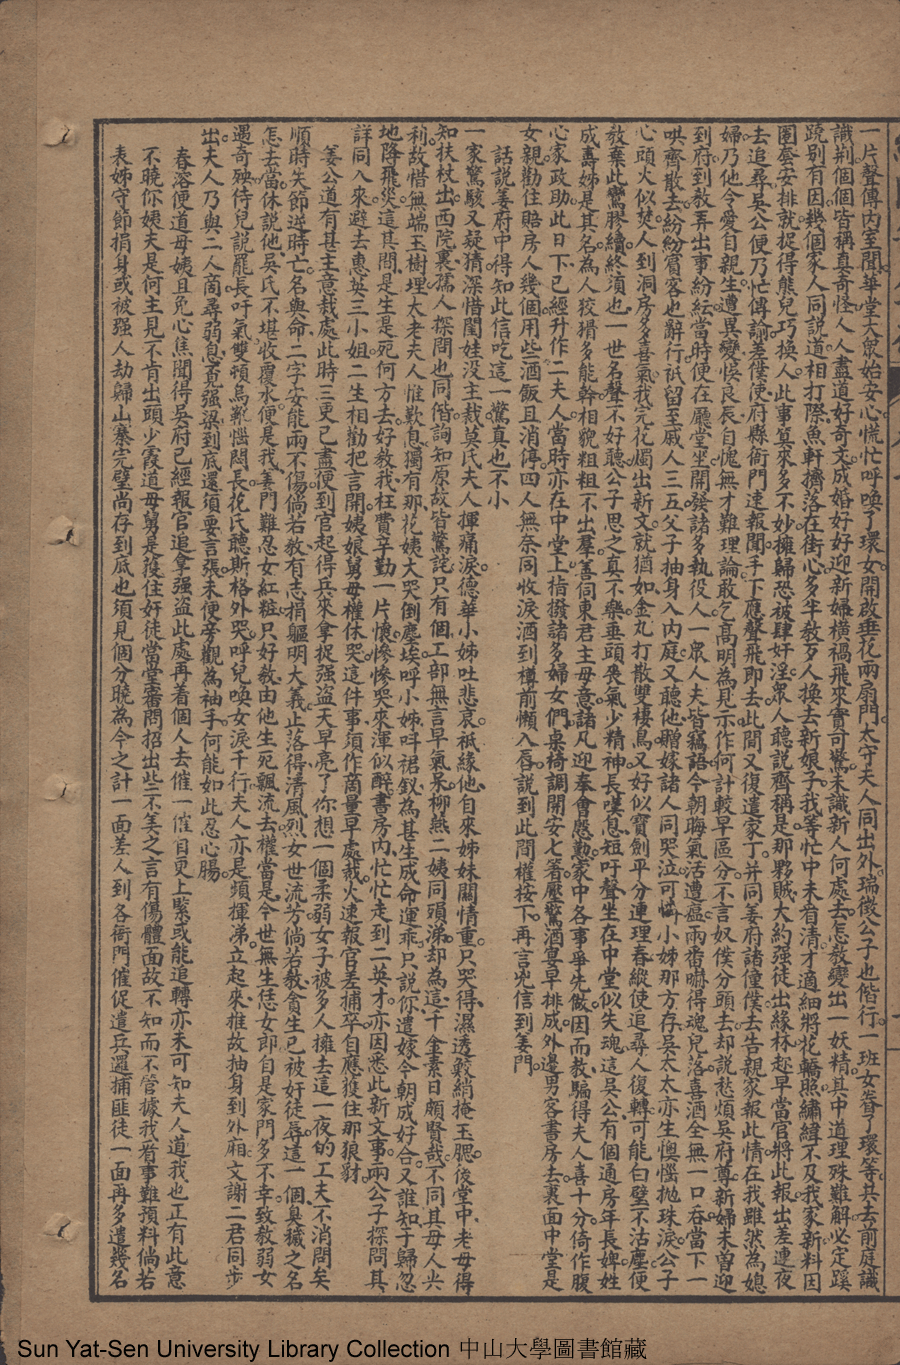 一片聲傳内室聞華堂大衆始安心慌忙呼喚了環女開啟垂花兩扇門太守夫人同出外瑞徵公子也偕行一班女眷了環等共去前庭識
識荆個個皆稱真奇怪人人盡道好奇文成婚好好迎新婦横禍飛來實可驚未識新人何處去怎教變出一妖精其中道理殊難解必定蹊
蹺别有因幾個家人同說道相打際魚軒擠落在街心多半教歹人換去新娘子我等忙中未看清才適細將花轎照繡緯不及我家新料因
圈套安排就捉得熊兒巧換人此事算來多不妙擁歸恐被肆奸淫衆人聽說齊稱是那夥賊大約强徒出綠林趁早當官將此報出差連夜
去追尋吴公便乃忙傳諭差僕使府縣衙門速報聞手下應聲飛即去此間又復遣家丁并同姜府諸僮僕去告親家報此情在我雖然為媳
婦乃他令愛自親生遭異變悞良辰自愧無才難理論敢乞高明為見示作何計較早區分不言奴僕分頭去却說愁煩吴府尊新婦未曾迎
到府到教弄出事紛紜當時便在廳堂坐開發諸多執役人一衆人夫皆竊語今朝晦氣活遭瘟兩番嚇得魂兒落喜酒全無一口吞當下一
哄齊散去紛紛賓客也辭行祇留至戚人三五父子抽身入内庭又聽他贈嫁諸人同哭泣可憐小姊那方存吴太太亦生懊惱抛珠淚公子
心頭火似焚人到洞房多喜氣我完花燭出新文就猶如金丸打散雙棲鳥又好似寶劍平分連理春縱使追尋人復轉可能白璧不沾塵便
教棄此鸞膠續終須也一世名聲不好聽公子思之真不樂垂頭喪氣少精神長嘆息短吁聲坐在中堂似失魂這吴公有個通房年長婢姓
成壽姊是其名為人狡猾多能幹相貌粗粗不出羣善伺東君主母意諸凡迎奉會慇懃家中各事爭先做因而教騙得夫人喜十分倚作腹
心家政助此日下已經升作二夫人當時亦在中堂上指撥諸多婦女們桌椅調開安七箸壓驚酒宴早排成外邊男客書房去裏面中堂是
女親勸住賠房人幾個用些酒飯且消停四人無奈同收淚酒到樽前懶入唇說到此間權按下再言兇信到姜門
話說姜府中得知此信吃這一驚真也不小
一家驚駭又疑猜深惜閨娃没主裁莫氏夫人揮痛淚德華小姊吐悲哀祇緣他自來姊妹關情重只哭得濕透鮫綃掩玉腮後堂中老母得
知扶杖出西院裏孺人探問也同偕詢知原故皆驚詫只有個工部無言早氣呆柳燕二姨同頭涕却為這千金素日頗賢哉不同其母人尖
利故惜無端玉樹埋太老夫人惟歎息獨有那花姨大哭倒塵埃呼小姊呌裙釵為甚生成命運乖只說你遣嫁今朝成好合又誰知于歸忽
地降飛災這其間是生是死何方去好教我枉費辛勤一片懷慘慘哭來渾似醉書房内忙忙走到二英才亦因悉此新文事兩公子探問其
詳同入來避去惠英三小姐二生相勸把言開姨娘舅母權休哭這件事須作商量早處裁火速報官差捕卒自應獲住那狼豺
姜公道有甚主意裁處此時三更已盡便到官起得兵來拿捉强盗天早亮了你想一個柔弱女子被多人擁去這一夜的工夫不消問矣
順時失節逆時亡名與命二字安能兩不傷倘若教有志捐軀明大義止落得清風烈女世流芳倘若教貪生已被奸徒辱這一個臭穢之名
怎去當休說他吴氏不堪收覆水便是我姜門難忍女紅粧只好教由他生死飄流去權當是今世無生恁女郎自是家門多不幸致教弱女
遇奇殃侍兒說罷長吁氣雙頓烏靴惱悶長花氏聽斯格外哭呼兒喚女淚千行夫人亦是頻揮涕立起來推故抽身到外廂文謝二君同步
出夫人乃與二人商尋弱息覓强梁到底還須要言張未便旁觀為袖手何能如此忍心腸
春溶便道母姨且免心焦聞得吴府已經報官追拿强盗此處再着個人去催一催自更上緊或能追轉亦未可知夫人道我也正有此意
不曉你姨夫是何主見不肯出頭少霞道母舅是獲住奸徒當堂審問招出些不美之言有傷體面故不知而不管據我看事難預料倘若
表姊守節捐身或被强人劫歸山寨完璧尚存到底也須見個分曉為今之計一面差人到各衙門催促遣兵邏捕匪徒一面再多遣幾名
Sun Yat-Sen University Library Collection 中山大學圖書館藏